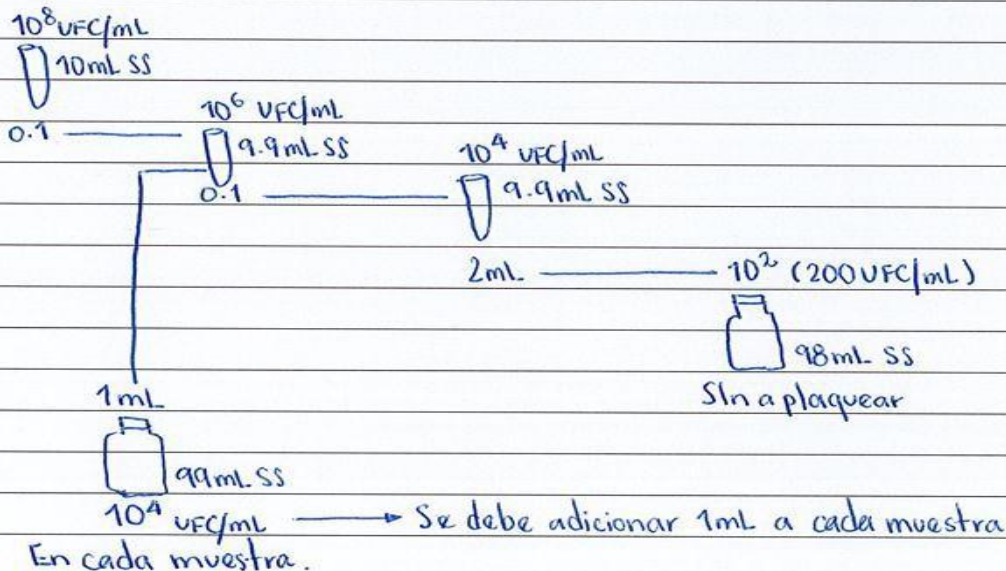 10⁸ UFC/mL
10mL SS
0.1
10⁶ UFC/mL
9.9mL SS
0.1
10⁴ UFC/mL
9.9mL SS
2mL
10² (200 UFC/mL)
98mL SS
Sln a plaquear
1mL
99mL SS
10⁴ UFC/mL → Se debe adicionar 1mL a cada muestra
En cada muestra.